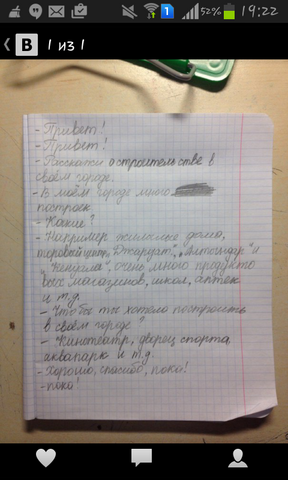 52% 19:22
B 1 из 1
- Привет!
- Привет!
- Расскажи о строительстве в
своём городе.
- В моём городе много
построек
- Какие?
- Например жилые дома,
торговый центр "Джаругат", "Алтындар" и
"Кендала", очень много продукто
вых магазинов, школ, аптек
и т.д.
- Что бы ты хотела построить
в своём городе
- Кинотеатр, дворец спорта,
аквапарк и т.д.
- Хорошо, спасибо, пока!
- пока!